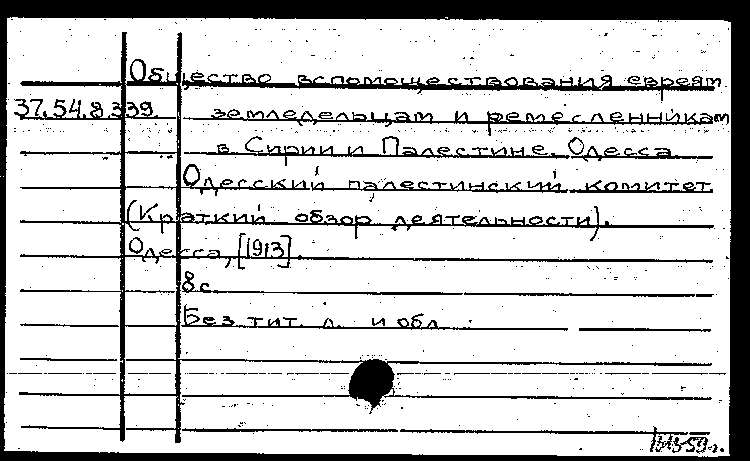 Общество вспомоществования евреям
37.54.8.339. земледельцам и ремесленникам
в Сирии и Палестине. Одесса
Одесский палестинский комитет
(Краткий обзор деятельности).
Одесса, [1913].
8 с.
Без тит. л. и обл.